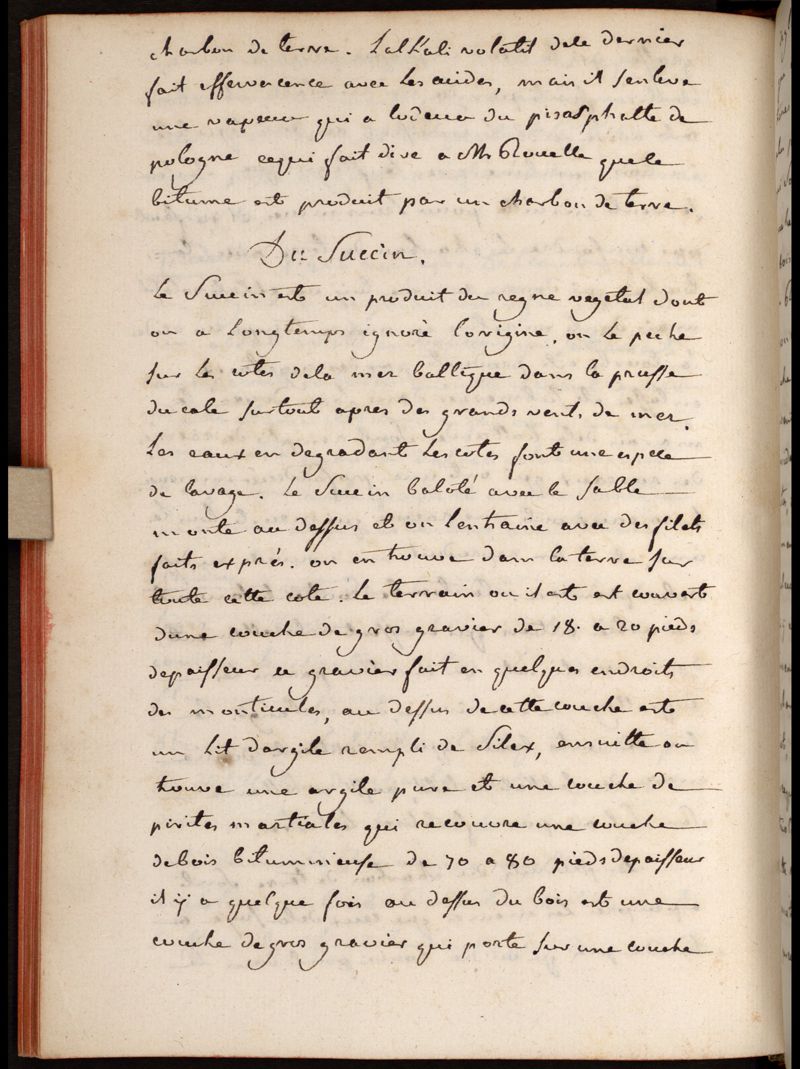 charbon de terre. Lalkali volatil dele dernier
fait effervercence avec les acides, mais il senleve
une vapeur qui a lodeur du pisasphalte de
pologne cequi fait dire a Mr Rouelle quele
bitume est produit par un charbon de terre.
Du Succin.
Le Succin est un produit du regne vegetal dont
on a Longtemps ignoré lorigine, on le peche
sur les cotes dela mer baltique dans la prusse
ducale surtout apres des grands vents de mer.
Les eaux en degradant les cotes font une espece
de lavage. Le Succin baloté avec le sable
monte au dessus et on lentraine avec des filets
faits exprés. on en trouve dans la terre sur
toute cette cote. Le terrain ou il est est couvert
dune couche de gros gravier de 18. a 20 pieds
depaisseur ce gravier fait en quelques endroits
des monticules, au dessus de cette couche est
un Lit dargile rempli de Silex, ensuitte on
trouve une argile pure et une couche de
pirites martiales qui recouvre une couche
debois bitumineuse de 70 a 80 pieds depaisseur
il y a quelque fois au dessus du bois est une
couche de gros gravier qui porte sur une couche